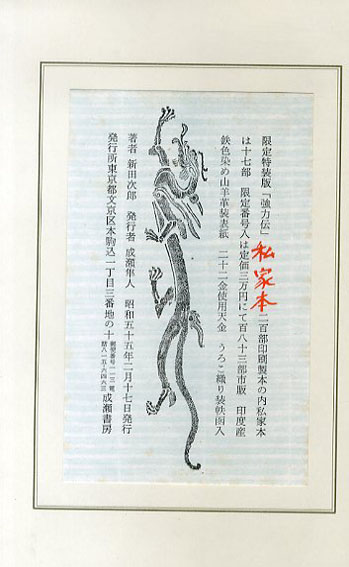 限定特装版「強力伝」 私家本 二百部印刷製本の内私家本
は十七部 限定番号入は定価三万円にて百八十三部市販 印度産
鉄色染め山羊革装表紙 二十二金使用天金 うろこ織り装帙函入
著者 新田次郎 発行者 成瀬隼人 昭和五十五年二月十七日発行
発行所東京都文京区本駒込一丁目三番地の十 郵便番号一一三電話八一五・六四六三 成瀬書房